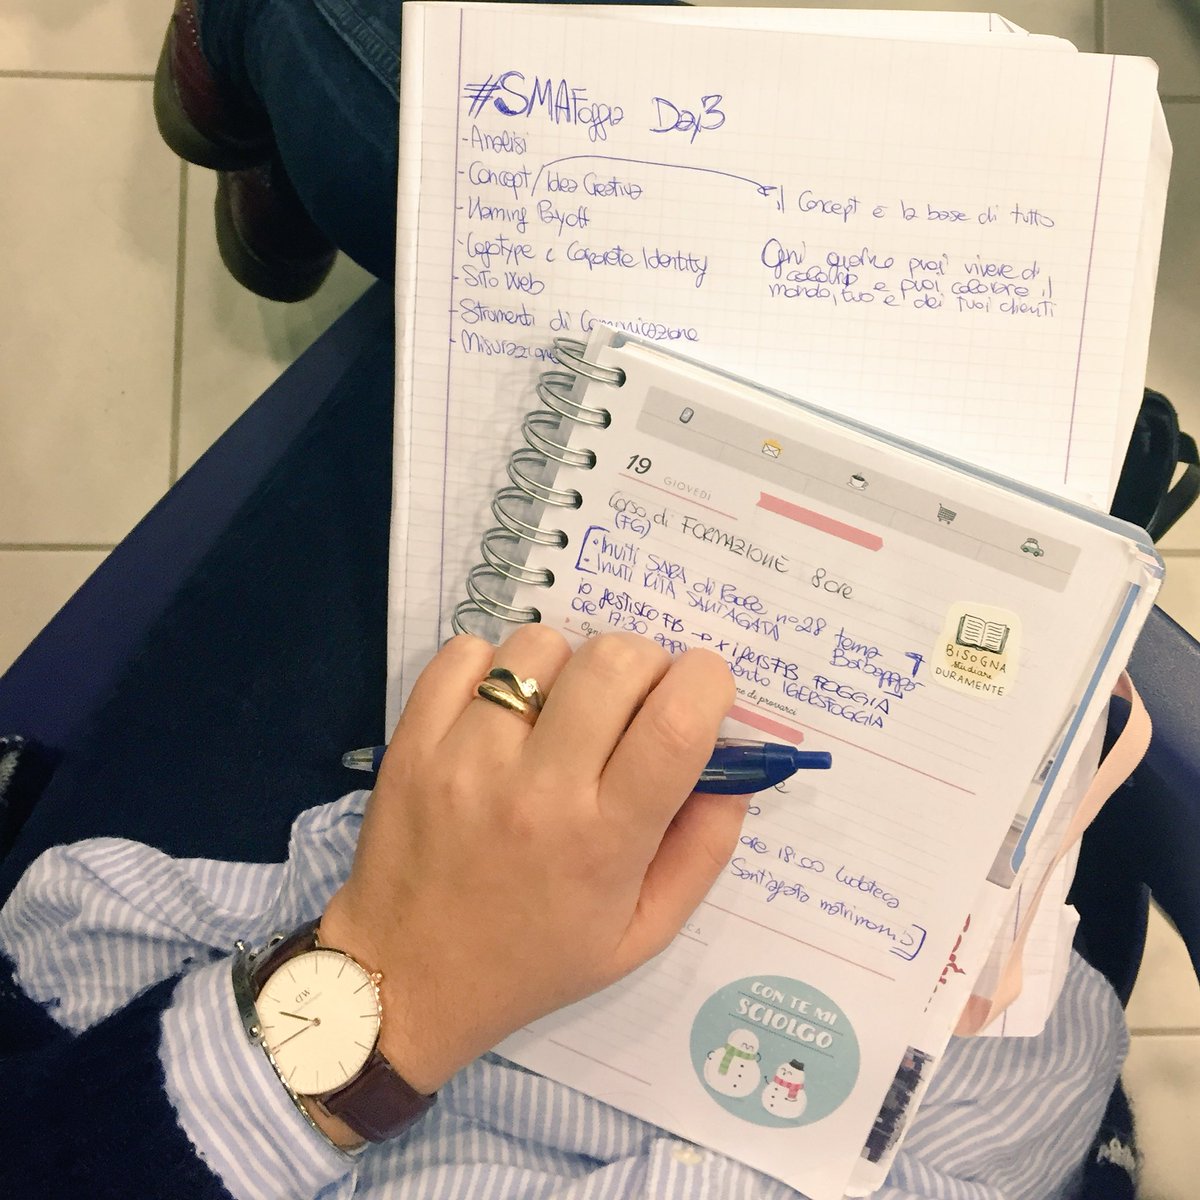 #SMAFoggia Day3
-Analisi
-Concept/Idea Creativa
il Concept è la base di tutto
-Naming Payoff
-Logotype e Corporate Identity
-Sito Web
-Strumenti di Comunicazione
-Misurazione
Ogni giorno puoi vivere di
colore e puoi colorare il
mondo, tuo e dei tuoi clienti
19 GIOVEDÌ
Corso di FORMAZIONE 8 ore
(FG)
• Inviti SARA di n° 28 tema
• Inviti RITA SANT'AGATA
io gestisco FB → x igersFB FOGGIA
ore 17:30 IGERSFOGGIA
Ogni
di provarci
BISOGNA
studiare
DURAMENTE
ore 18:00 Ludoteca
Sant'Agata matrimoni
CON TE MI
SCIOLGO
DW